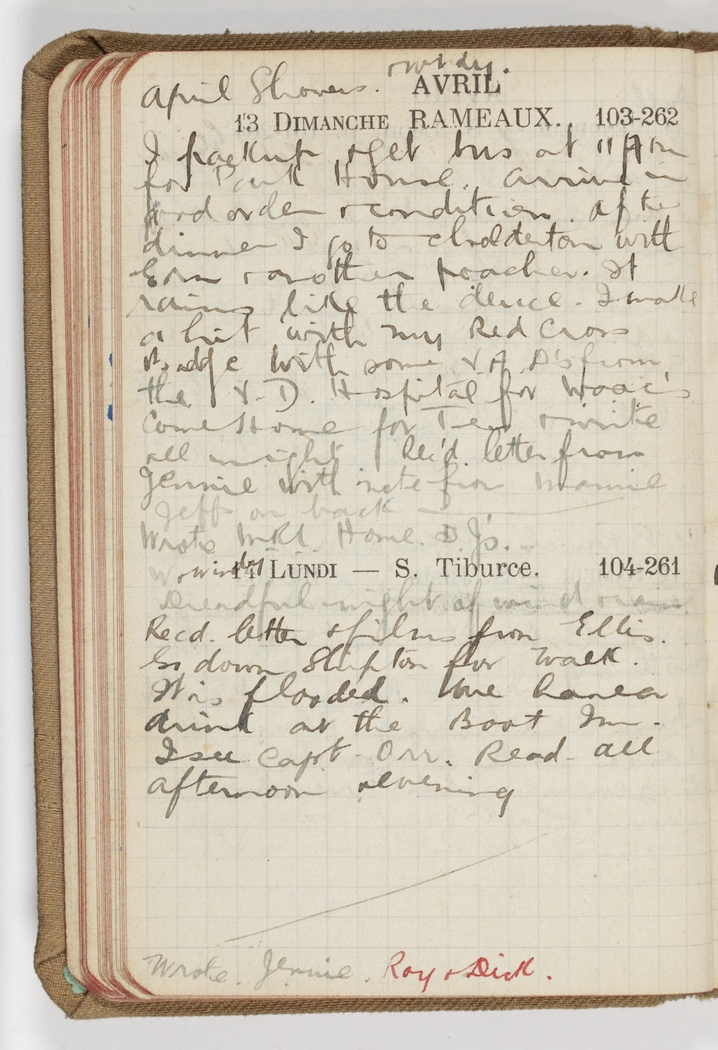 April Showers. & windy.
AVRIL
13 DIMANCHE RAMEAUX. 103-262
I pack up & get bus at 11 Am
for Park House. Arrive in
good order & condition. After
dinner I go to Cholderton with
Ern & another poacher. It
rains like the deuce. I make
a hit with my Red Cross
Badge with some V.A.D's from
the V.D. Hospital for Waac's
Come Home for Tea & write
all night. Rec'd letter from
Jennie with note from Mamie
Jeff on back
Wrote Home. D.J's.
windy
14 LUNDI — S. Tiburce. 104-261
Dreadful night of wind & rain
Recd. letter & films from Ellis.
Go down Shipton for walk.
It is flooded. We have a
drink at the Boot Inn.
I see Capt. Orr. Read all
afternoon & evening
Wrote. Jennie. Roy & Dick.